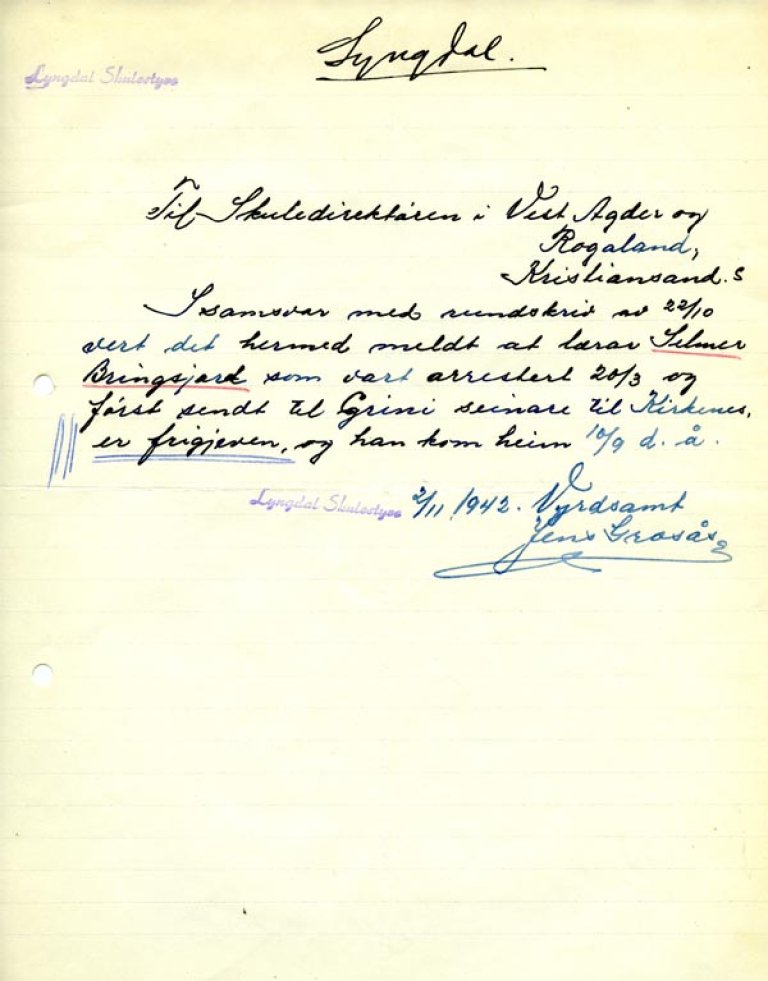 Lyngdal.
Lyngdal Skulestyre
Til Skuledirektøren i Vest Agder og
Rogaland,
Kristiansand. S
I samsvar med rundskriv av 22/10
vert det hermed meldt at lærar Selmer
Bringsjord som vart arrestert 20/3 og
først sendt til Grini seinare til Kirkenes,
er frigjeven, og han kom heim 10/9 d. å.
Lyngdal Skulestyre 2/11 1942. Vyrdsamt
Jens Grosås